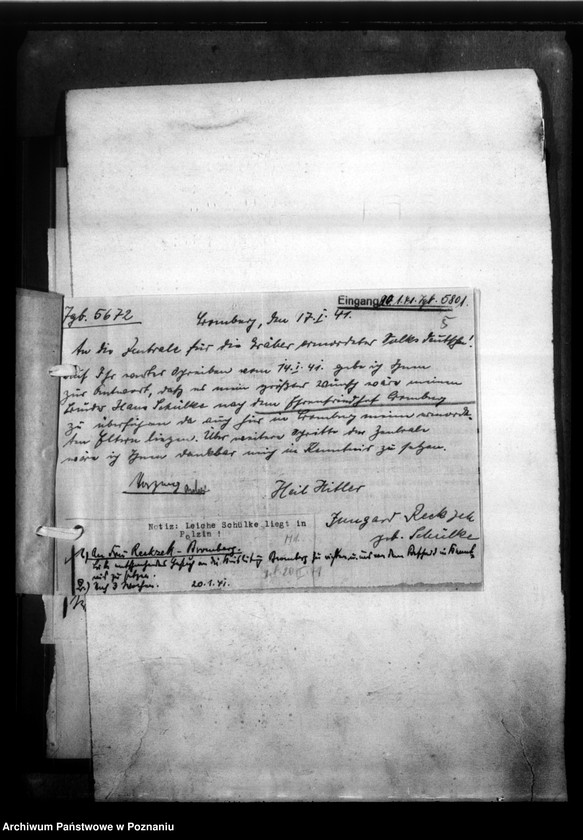 Eingang 20.1.41. Tgb. 5801.
Tgb. 5672
5
Bromberg, den 17.I.41.
An die Zentrale für die Gräber ermordeter Volksdeutsche!
Auf Ihr wertes Schreiben vom 14.I.41. gebe ich Ihnen
zur Antwort, daß es mein größter Wunsch wäre meinen
Bruder Hans Schülke nach dem Ehrenfriedhof Bromberg
zu überführen da auch hier in Bromberg meine ermorde-
ten Eltern liegen. Über weitere Schritte der Zentrale
wäre ich Ihnen dankbar mich in Kenntnis zu setzen.
Vorgang
Heil Hitler
Irmgard Reckzeh
geb. Schülke
Notiz: Leiche Schülke liegt in
Polzin !
1.) An Frau Reckzeh - Bromberg.
entsprechendes Gesuch an die Bromberg zu richten u. uns von dem
zu setzen.
2.) Nach 3 Wochen.
20.1.41.
Archiwum Państwowe w Poznaniu